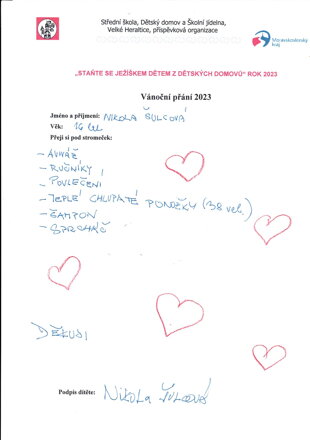 Střední škola, Dětský domov a Školní jídelna,
Velké Heraltice, příspěvková organizace
Moravskoslezský
kraj
„STAŇTE SE JEŽÍŠKEM DĚTEM Z DĚTSKÝCH DOMOVŮ“ ROK 2023
Vánoční přání 2023
Jméno a příjmení: NIKOLA ŠULCOVÁ
Věk: 16 let
Přeji si pod stromeček:
- RUČNÍKY
- POVLEČENÍ
- TEPLÉ CHLUPATÉ PONOŽKY (38 vel.)
- ŠAMPON
- SPRCHÁČ
DĚKUJI
Podpis dítěte: Nikola Šulcová